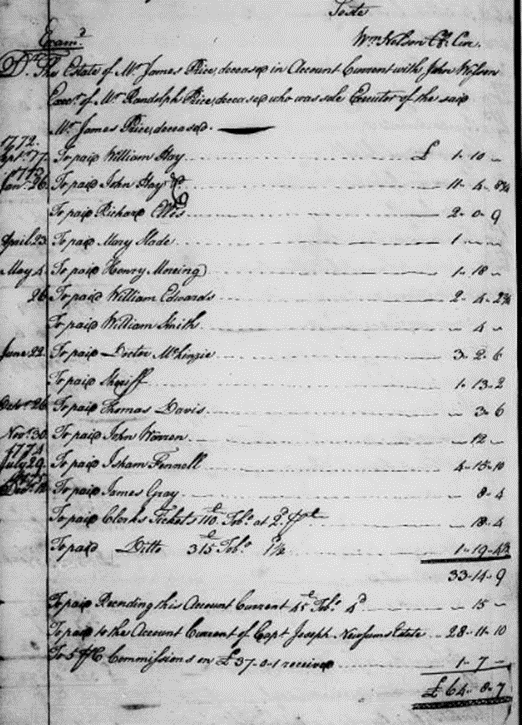 Teste
Wm Nelson Cl. Cur.
Examd
Dr. The Estate of Mr. James Rice, deceased in Account Current with John Wilson
Execr. of Mr. Randolph Rice, deceased who was sole Executor of the said
Mr. James Rice, deceased.
1772.
To paid William Hay £ 1 - 10 -
Jany. 26 To paid John Hay &c 11 - 4 - 8¼
To paid Richard 2 - 0 - 9
April 23 To paid Mary Slade 1 - -
May 4 To paid Henry Moreing 1 - 18 -
26 To paid William Edwards 2 - 4 - 2¾
To paid William Smith - 4 -
June 22 To paid Doctor McKinzie 3 - 2 - 6
To paid Sheriff 1 - 13 - 2
Octor. 26 To paid Thomas Davis - 3 - 6
Novr. 30 To paid John Warren - 12 -
1774
July 29 To paid Isham Fennell 4 - 15 - 10
Decr. To paid James Gray - 8 - 4
To paid Clerks Tickets 110 lb Tobo. at 2d. - 18 - 4
To paid Ditto 315 lb Tobo. 1½ 1 - 19 - 4½
33 - 14 - 9
To paid Recording this Account Current 45 lb Tobo. 4d - 15 -
To paid to the Account Current of Capt Joseph Newsums Estate 28 - 11 - 10
To 5 PC Commissions on £37 - 0 - 1 received 1 - 7 -
£ 64 - 8 - 7